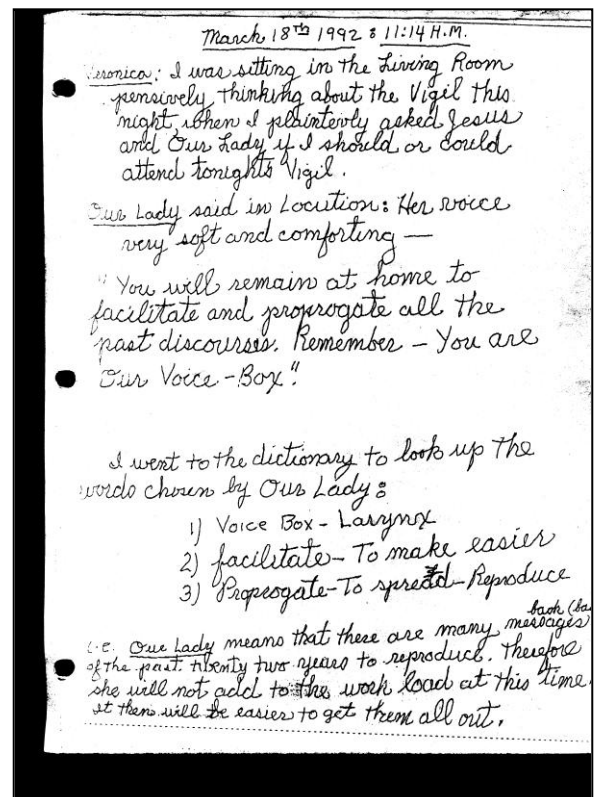 March 18th 1992 : 11:14 H.M.
Veronica: I was sitting in the Living Room
pensively, thinking about the Vigil this
night, when I plaintevly asked Jesus
and Our Lady if I should or could
attend tonights Vigil.
Our Lady said in Locution: Her voice
very soft and comforting —
"You will remain at home to
facilitate and proprogate all the
past discourses. Remember – You are
Our Voice-Box".
I went to the dictionary to look up the
words chosen by Our Lady:
1) Voice Box - Larynx
2) facilitate - To make easier
3) Proprogate - To spread - Reproduce
i.e. Our Lady means that there are many back (ba messages
of the past twenty two years to reproduce. Therefore
she will not add to the work load at this time.
it then will be easier to get them all out.